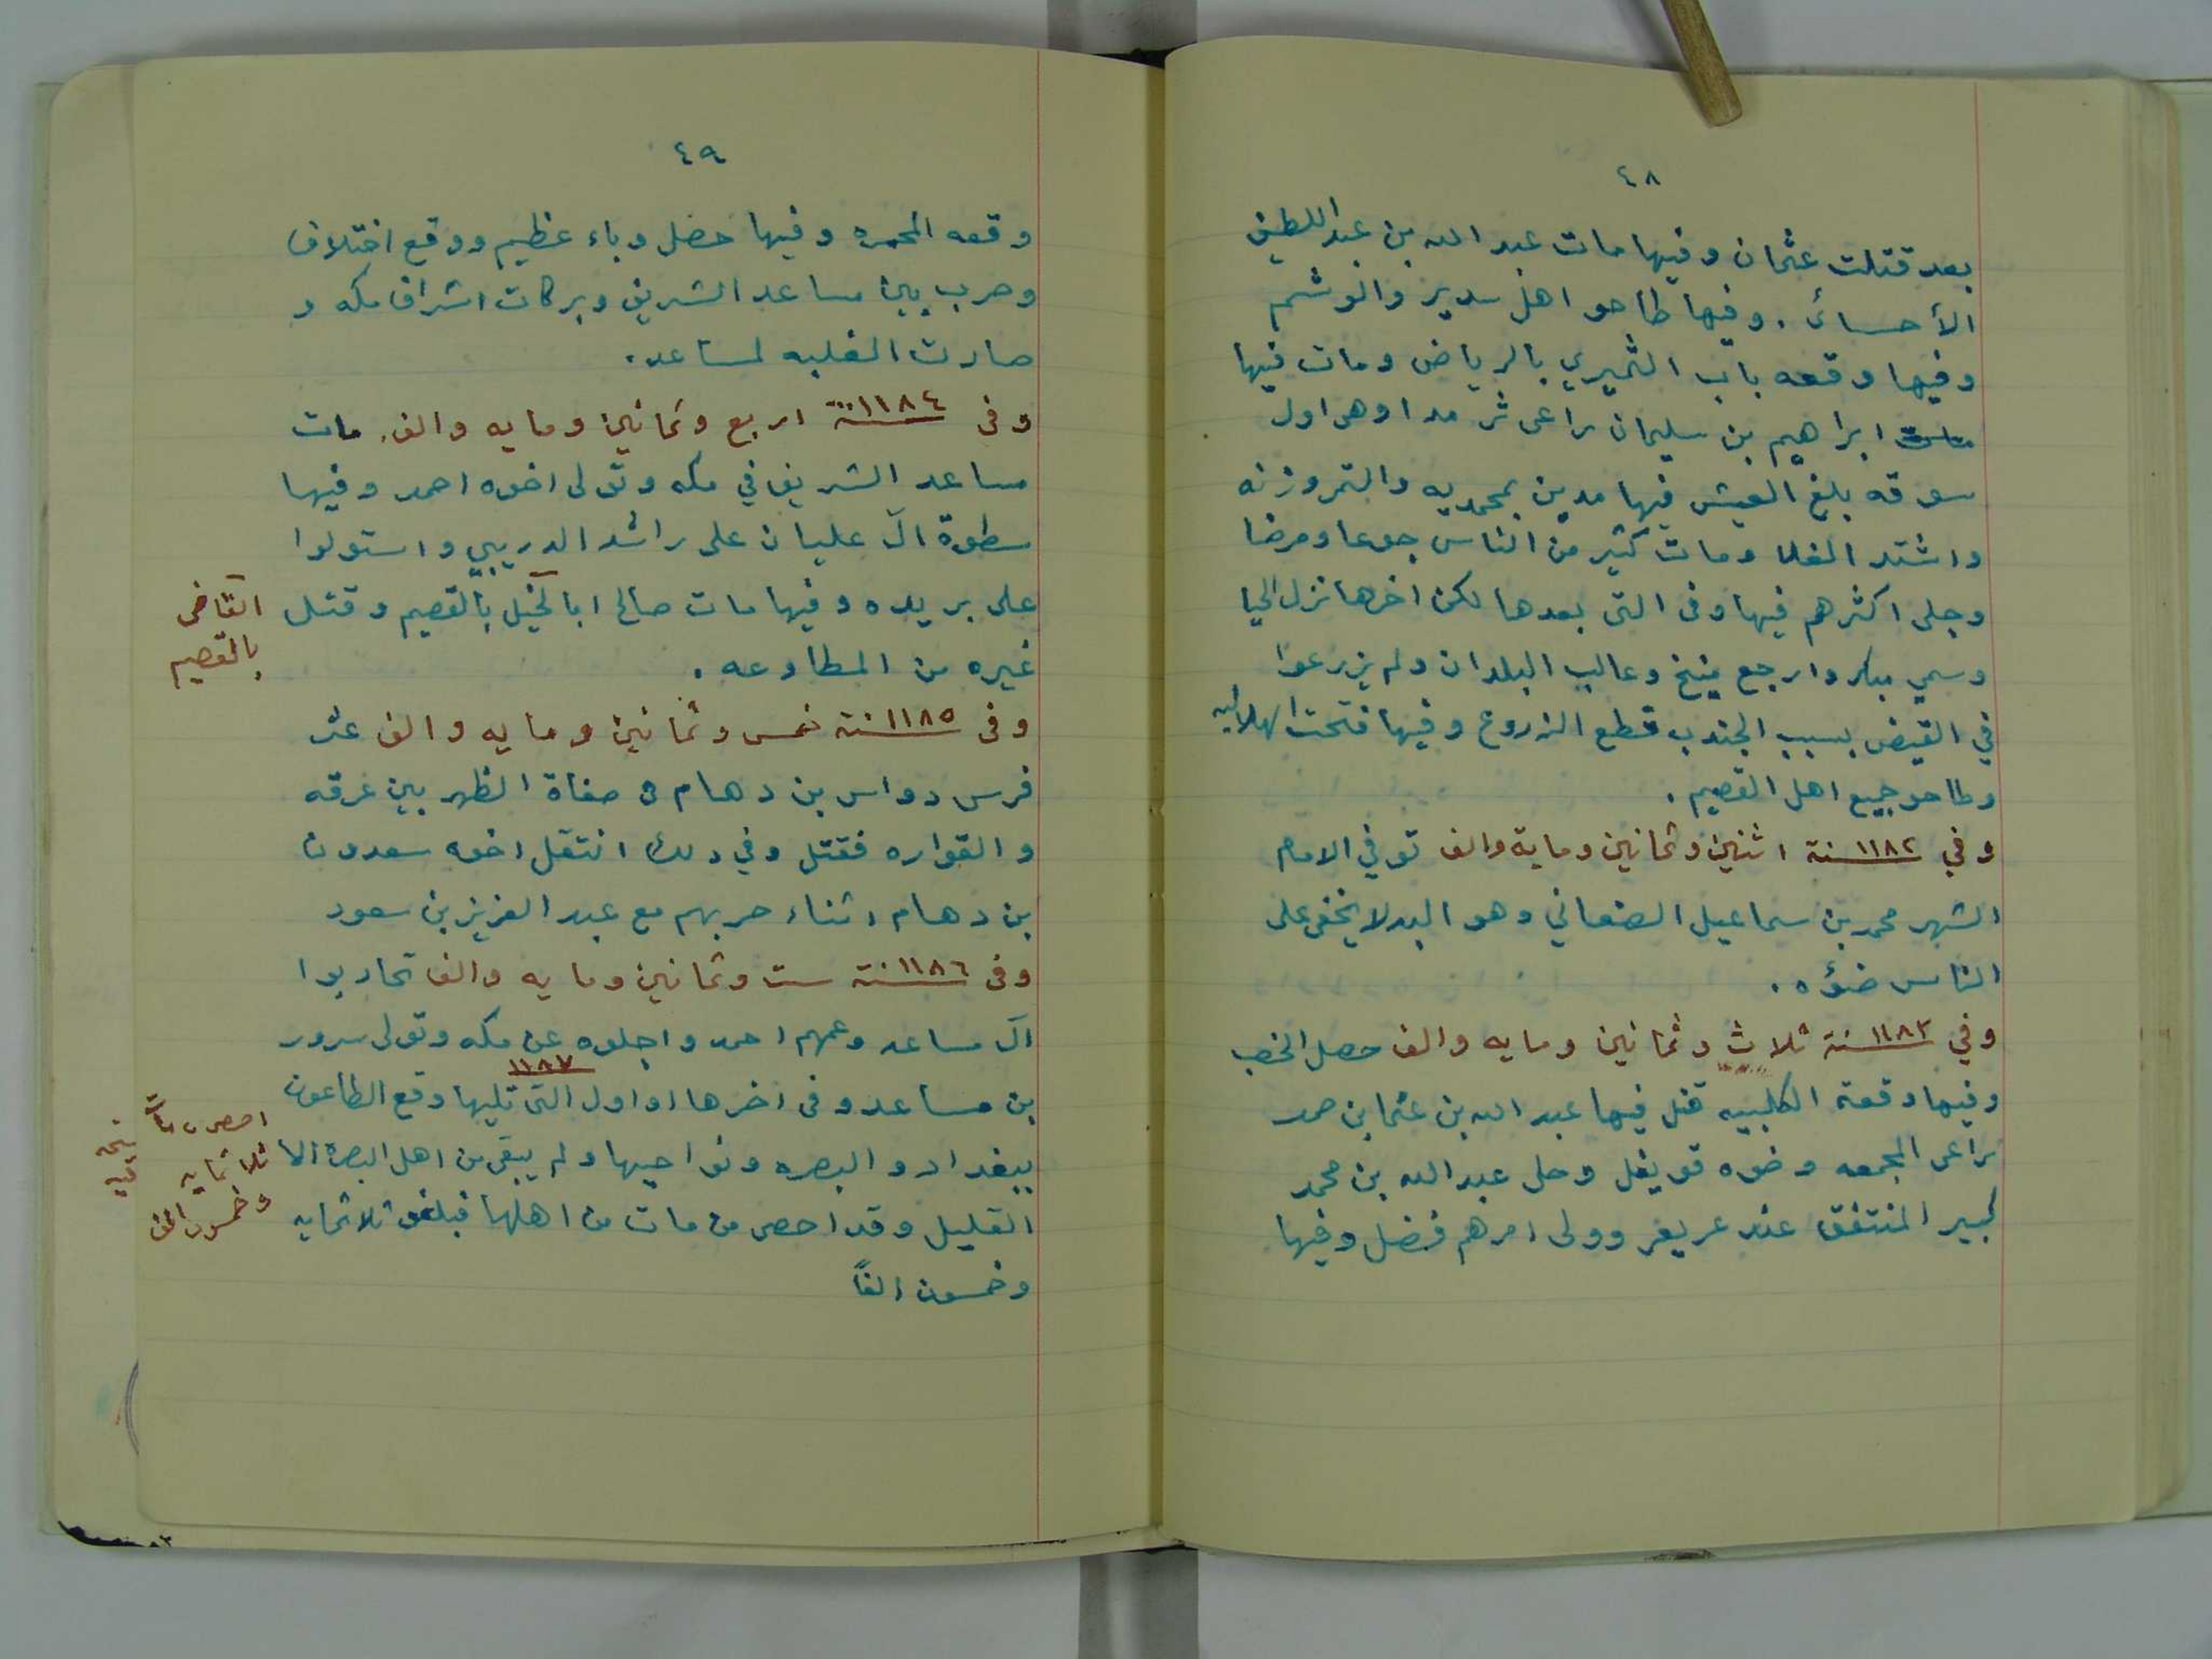 ٤٨
بعد قتلت عثمان وفيها مات عبد الله بن عبد اللطيف
الأحسائ. وفيها طاحو اهل سدير والوشم
وفيها وقعه باب الثميري بالرياض ومات فيها
ابراهيم بن سليمان راعى ثرمدا وهى اول
سوقه بلغ العيش فيها مدين بمحمديه والتمر وزنه
واشتد الغلا ومات كثير من الناس جوعا ومرضا
وجلى اكثرهم فيها وفى التى بعدها لكن اخرها نزل الحيا
وسمي مبكر وارجع منيخ وغالب البلدان ولم يزرعوا
في القيض بسبب الجندب قطع الزروع وفيها فتحت الهلاليه
وطاحو جميع اهل القصيم.
وفي ١١٨٢ سنة اثنين وثمانين وماية والف توفي الامام
الشهر محمد بن سماعيل الصنعاني وهو البدلا يخفى على
الناس ضوءه.
وفي ١١٨٣ سنة ثلاث وثمانين ومايه والف حصل الخصب
وفيها وقعة الكلبيه قتل فيها عبد الله بن عثما بن حمد
راعى المجمعه وخوه قويفل وحل عبد الله بن محمد
كبير المنتفق عند عريعر وولى امرهم فضل وفيها
٤٩
وقعه المحمره وفيها حصل وباء عظيم ووقع اختلاف
وحرب بين مساعد الشريف وبركات اشراف مكه و
صارت الغلبه لمساعد.
وفى ١١٨٤ سنة اربع وثمانين ومايه والف. مات
مساعد الشريف في مكه وتولى اخوه احمد وفيها
سطوة آل عليان على راشد الدريبي واستولوا
على بريده وفيها مات صالح ابا الخيل بالقصيم وقتل
القاضى
بالقصيم
غيره من المطاوعه.
وفى ١١٨٥ سنة خمس وثمانين ومايه والف عثر
فرس دواس بن دهام فى صفاة الظهر بين عرقه
والقواره فقتل وفي ذلك انتقل اخوه سعدون
بن دهام اثناء حربهم مع عبد العزيز بن سعود
وفى ١١٨٦ سنة ست وثمانين ومايه والف تحاربوا
آل مساعد وعمهم احمد واجلوه عن مكه وتولى سرور
١١٨٧
بن مساعد وفى اخرها اواول التى تليها وقع الطاعون
ببغداد والبصره ونواحيها ولم يبقى من اهل البصرة الا
القليل وقد احصى من مات من اهلها فبلغو ثلاثمايه
وخمسون الفاً
ثلاثمايه
وخمسون الف